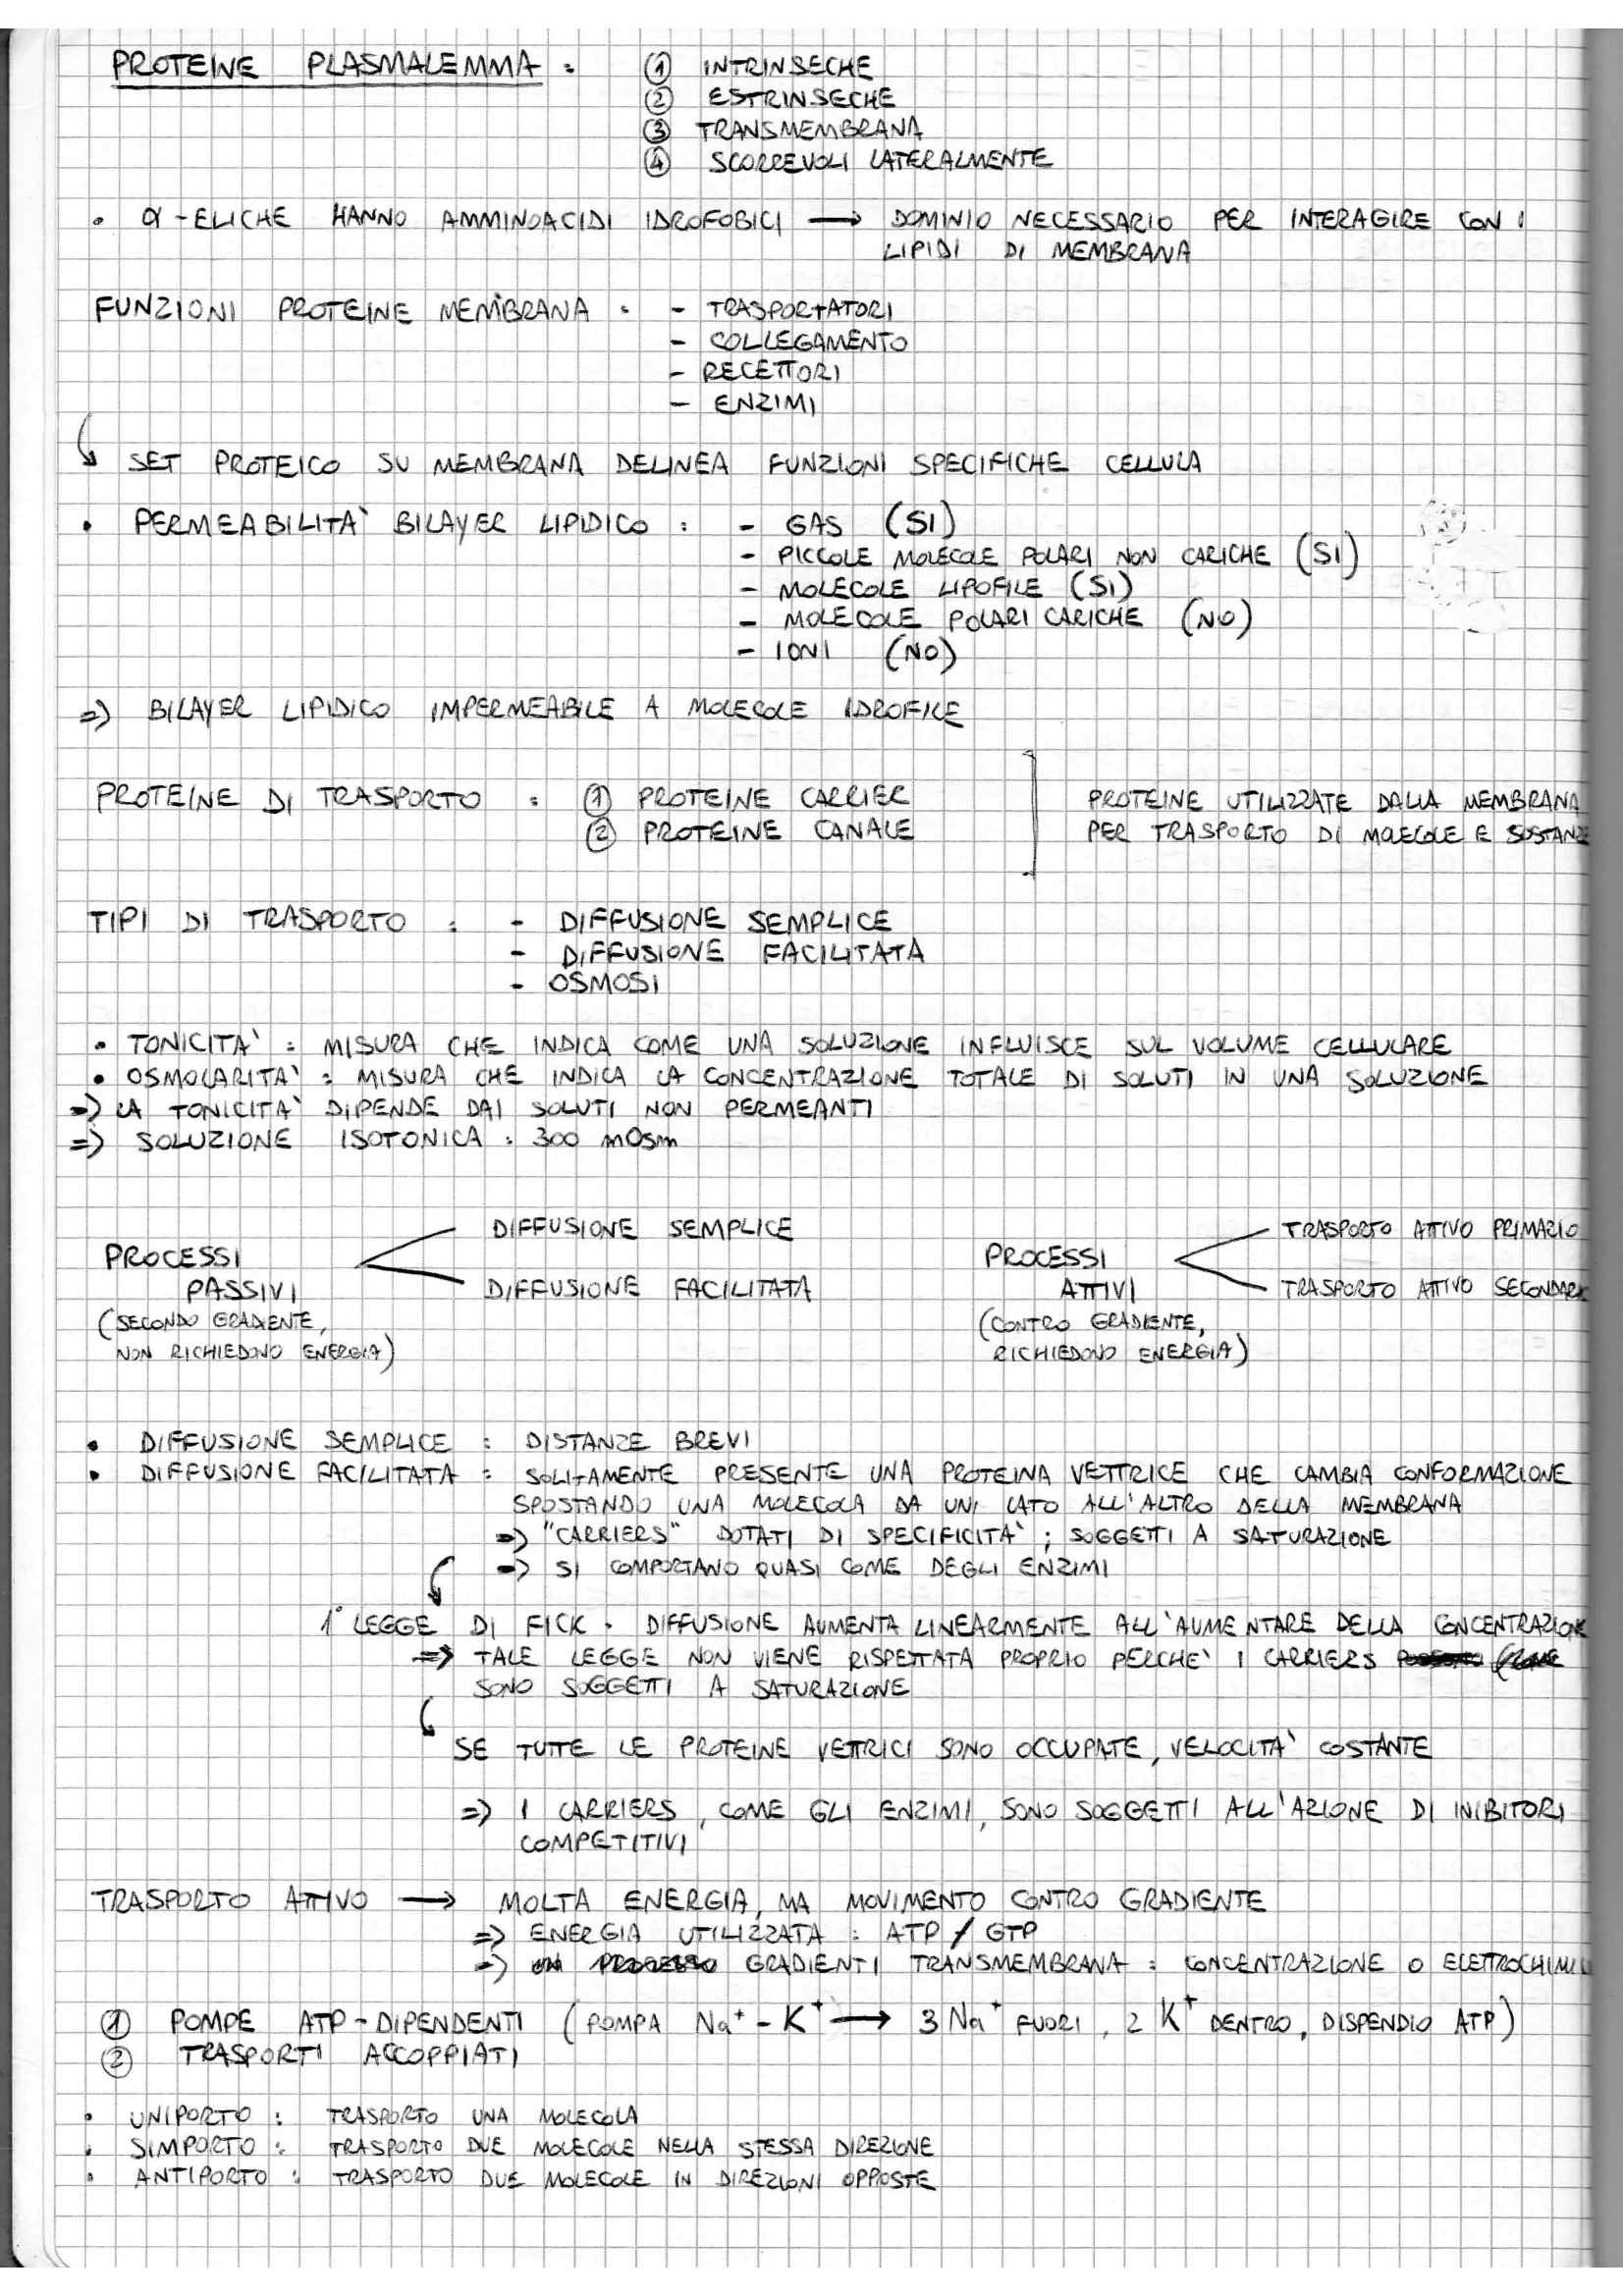 PROTEINE PLASMALEMMA : ① INTRINSECHE
② ESTRINSECHE
③ TRANSMEMBRANA
④ SCORREVOLI LATERALMENTE
• α-ELICHE HANNO AMMINOACIDI IDROFOBICI → DOMINIO NECESSARIO PER INTERAGIRE CON I
LIPIDI DI MEMBRANA
FUNZIONI PROTEINE MEMBRANA : - TRASPORTATORI
- COLLEGAMENTO
- RECETTORI
- ENZIMI
↳ SET PROTEICO SU MEMBRANA DELINEA FUNZIONI SPECIFICHE CELLULA
• PERMEABILITA' BILAYER LIPIDICO : - GAS (SI)
- PICCOLE MOLECOLE POLARI NON CARICHE (SI)
- MOLECOLE LIPOFILE (SI)
- MOLECOLE POLARI CARICHE (NO)
- IONI (NO)
=> BILAYER LIPIDICO IMPERMEABILE A MOLECOLE IDROFILE
PROTEINE DI TRASPORTO : ① PROTEINE CARRIER
② PROTEINE CANALE
PROTEINE UTILIZZATE DALLA MEMBRANA
PER TRASPORTO DI MOLECOLE E SOSTANZE
TIPI DI TRASPORTO : - DIFFUSIONE SEMPLICE
- DIFFUSIONE FACILITATA
- OSMOSI
• TONICITA' : MISURA CHE INDICA COME UNA SOLUZIONE INFLUISCE SUL VOLUME CELLULARE
• OSMOLARITA' : MISURA CHE INDICA LA CONCENTRAZIONE TOTALE DI SOLUTI IN UNA SOLUZIONE
=> LA TONICITA' DIPENDE DAI SOLUTI NON PERMEANTI
=> SOLUZIONE ISOTONICA : 300 mOsm
PROCESSI
PASSIVI
(SECONDO GRADIENTE,
NON RICHIEDONO ENERGIA)
DIFFUSIONE SEMPLICE
DIFFUSIONE FACILITATA
PROCESSI
ATTIVI
(CONTRO GRADIENTE,
RICHIEDONO ENERGIA)
TRASPORTO ATTIVO PRIMARIO
TRASPORTO ATTIVO SECONDARIO
• DIFFUSIONE SEMPLICE : DISTANZE BREVI
• DIFFUSIONE FACILITATA : SOLITAMENTE PRESENTE UNA PROTEINA VETTRICE CHE CAMBIA CONFORMAZIONE
SPOSTANDO UNA MOLECOLA DA UNI LATO ALL'ALTRO DELLA MEMBRANA
=> "CARRIERS" DOTATI DI SPECIFICITA' ; SOGGETTI A SATURAZIONE
=> SI COMPORTANO QUASI COME DEGLI ENZIMI
1° LEGGE DI FICK : DIFFUSIONE AUMENTA LINEARMENTE ALL'AUMENTARE DELLA CONCENTRAZIONE
=> TALE LEGGE NON VIENE RISPETTATA PROPRIO PERCHE' I CARRIERS
SONO SOGGETTI A SATURAZIONE
SE TUTTE LE PROTEINE VETTRICI SONO OCCUPATE, VELOCITA' COSTANTE
=> I CARRIERS, COME GLI ENZIMI, SONO SOGGETTI ALL'AZIONE DI INIBITORI
COMPETITIVI
TRASPORTO ATTIVO → MOLTA ENERGIA, MA MOVIMENTO CONTRO GRADIENTE
=> ENERGIA UTILIZZATA : ATP / GTP
=> GRADIENTI TRANSMEMBRANA : CONCENTRAZIONE O ELETTROCHIMI
① POMPE ATP-DIPENDENTI (POMPA Na⁺ - K⁺ → 3 Na⁺ FUORI, 2 K⁺ DENTRO, DISPENDIO ATP)
② TRASPORTI ACCOPPIATI
• UNIPORTO : TRASPORTO UNA MOLECOLA
• SIMPORTO : TRASPORTO DUE MOLECOLE NELLA STESSA DIREZIONE
• ANTIPORTO : TRASPORTO DUE MOLECOLE IN DIREZIONI OPPOSTE